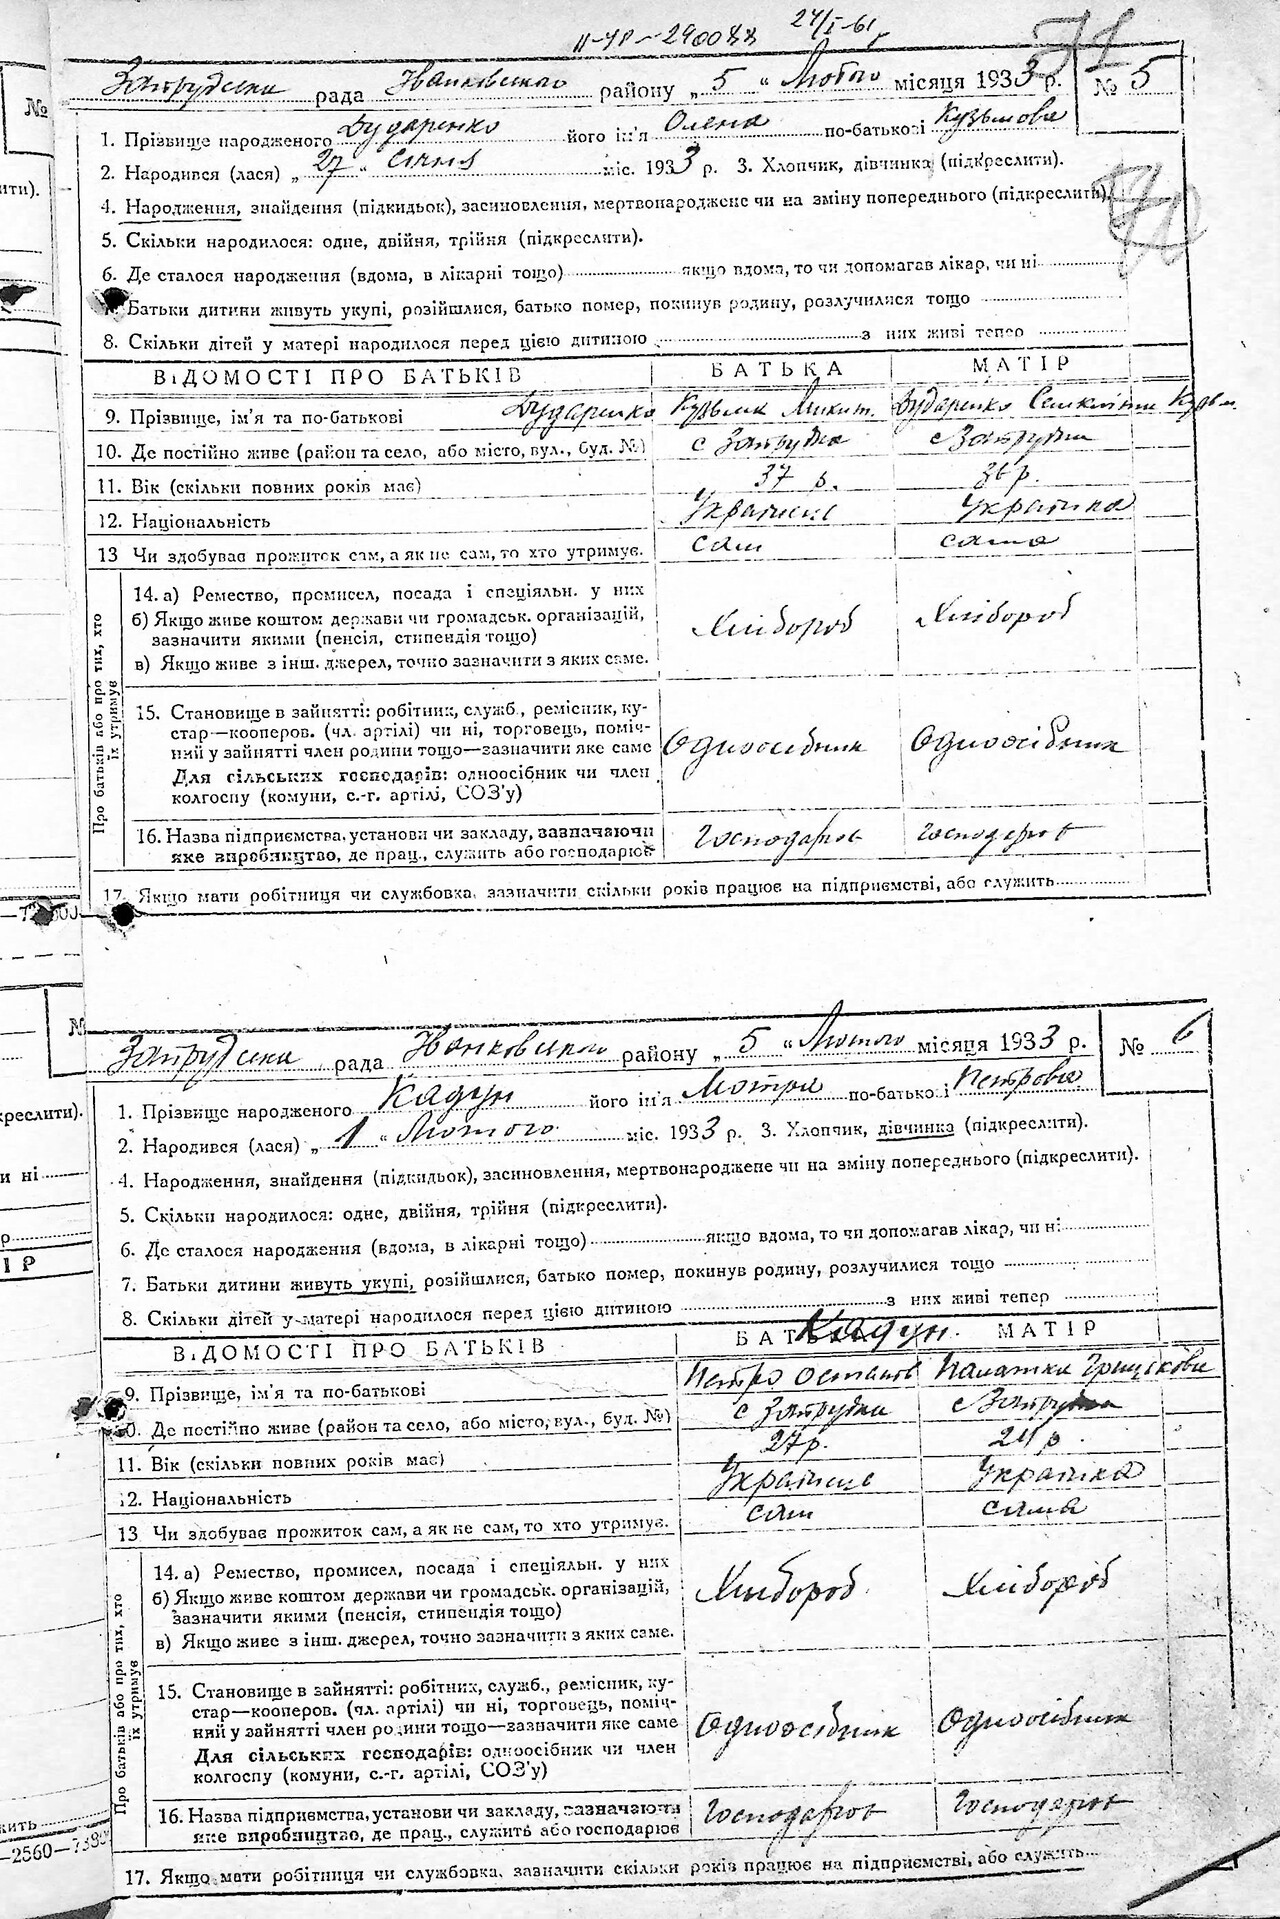 II-УР-290088 24/I-61г
71
Запрудська рада Іванковського району „ 5 “ Лютого місяця 1933 р. № 5
1. Прізвище народженого Бударенко його ім'я Олена по-батькові Кузьмова
2. Народився (лася) „ 27 “ січня міс. 1933 р. 3. Хлопчик, дівчинка (підкреслити).
4. Народження, знайдення (підкидьок), засиновлення, мертвонароджене чи на зміну попереднього (підкреслити).
5. Скільки народилося: одне, двійня, трійня (підкреслити).
6. Де сталося народження (вдома, в лікарні тощо) якщо вдома, то чи допомагав лікар, чи ні
Батьки дитини живуть укупі, розійшлися, батько помер, покинув родину, розлучилися тощо
8. Скільки дітей у матері народилося перед цією дитиною з них живі тепер
ВІДОМОСТІ ПРО БАТЬКІВ БАТЬКА МАТІР
9. Прізвище, ім'я та по-батькові Бударенко Кузьма Микит. Бударенко Кузьм.
10. Де постійно живе (район та село, або місто, вул., буд. №) с Запрудка с Запрудка
11. Вік (скільки повних років має) 37 р. 36 р.
12. Національність Українець Українка
13 Чи здобуває прожиток сам, а як не сам, то хто утримує. сам сама
Про батьків або про тих, хто їх утримує
14. а) Ремество, промисел, посада і спеціяльн. у них
б) Якщо живе коштом держави чи громадськ. організацій,
зазначити якими (пенсія, стипендія тощо) Хлібороб Хлібороб
в) Якщо живе з інш. джерел, точно зазначити з яких саме.
15. Становище в зайнятті: робітник, служб., ремісник, ку-
стар—кооперов. (чл. артілі) чи ні, торговець, поміч-
ний у зайнятті член родини тощо—зазначити яке саме Одноосібник Одноосібник
Для сільських господарів: одноосібник чи член
колгоспу (комуни, с.-г. артілі, СОЗ'у)
16. Назва підприємства, установи чи закладу, зазначаючи Господарює Господарює
яке виробництво, де прац., служить або господарює
17. Якщо мати робітниця чи службовка, зазначити скільки років працює на підприємстві, або служить
Запрудська рада Іванковського району „ 5 “ Лютого місяця 1933 р. № 6
1. Прізвище народженого Кадун його ім'я Мотря по-батькові Петрова
2. Народився (лася) „ 1 “ Лютого міс. 1933 р. 3. Хлопчик, дівчинка (підкреслити).
4. Народження, знайдення (підкидьок), засиновлення, мертвонароджене чи на зміну попереднього (підкреслити).
5. Скільки народилося: одне, двійня, трійня (підкреслити).
6. Де сталося народження (вдома, в лікарні тощо) якщо вдома, то чи допомагав лікар, чи ні
7. Батьки дитини живуть укупі, розійшлися, батько помер, покинув родину, розлучилися тощо
8. Скільки дітей у матері народилося перед цією дитиною з них живі тепер
ВІДОМОСТІ ПРО БАТЬКІВ БАТЬКА Кадун. МАТІР
9. Прізвище, ім'я та по-батькові Петро Остапов Палажка Грицькова
10. Де постійно живе (район та село, або місто, вул., буд. №) с Запрудка с Запрудка
11. Вік (скільки повних років має) 27 р. 24 р.
12. Національність Українець Українка
13. Чи здобуває прожиток сам, а як не сам, то хто утримує. сам сама
Про батьків або про тих, хто їх утримує
14. а) Ремество, промисел, посада і спеціяльн. у них
б) Якщо живе коштом держави чи громадськ. організацій, Хлібороб Хлібороб
зазначити якими (пенсія, стипендія тощо)
в) Якщо живе з інш. джерел, точно зазначити з яких саме.
15. Становище в зайнятті: робітник, служб., ремісник, ку-
стар—кооперов. (чл. артілі) чи ні, торговець, поміч-
ний у зайнятті член родини тощо—зазначити яке саме Одноосібник Одноосібник
Для сільських господарів: одноосібник чи член
колгоспу (комуни, с.-г. артілі, СОЗ'у)
16. Назва підприємства, установи чи закладу, зазначаючи Господарює Господарює
яке виробництво, де прац., служить або господарює
17. Якщо мати робітниця чи службовка, зазначити скільки років працює на підприємстві, або служить